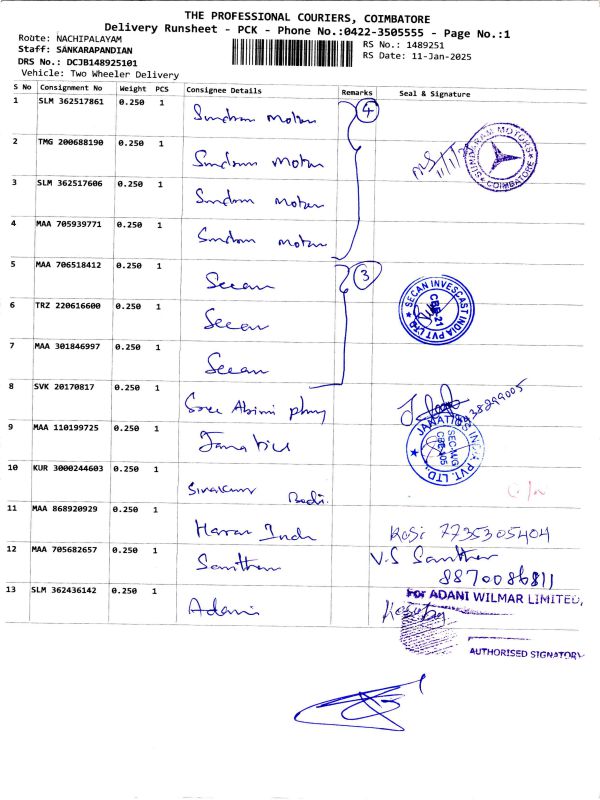 THE PROFESSIONAL COURIERS, COIMBATORE
Delivery Runsheet - PCK - Phone No.:0422-3505555 - Page No.:1
Route: NACHIPALAYAM
Staff: SANKARAPANDIAN
DRS No.: DCJB148925101
Vehicle: Two Wheeler Delivery
RS No.: 1489251
RS Date: 11-Jan-2025
S No Consignment No Weight PCS Consignee Details Remarks Seal & Signature
1 SLM 362517861 0.250 1 Sundram Motors 4
2 TMG 200688190 0.250 1 Sundram Motors
SUNDARAM MOTORS COIMBATORE
3 SLM 362517606 0.250 1 Sundram Motors
4 MAA 705939771 0.250 1 Sundram Motors
5 MAA 706518412 0.250 1 Secan 3
SECAN INVESCAST INDIA PVT LTD
CBE-21
6 TRZ 220616600 0.250 1 Secan
7 MAA 301846997 0.250 1 Secan
8 SVK 20170817 0.250 1 Sree Abimi
9 MAA 110199725 0.250 1 Janatics
JANATICS INDIA PVT. LTD.,
10 KUR 3000244603 0.250 1 Sivakumr
11 MAA 868920929 0.250 1 Haran Inds Kasi 7735305404
12 MAA 705682657 0.250 1 Santhen V.S Santhen
8870086811
13 SLM 362436142 0.250 1 Adani
For ADANI WILMAR LIMITED,
AUTHORISED SIGNATORY